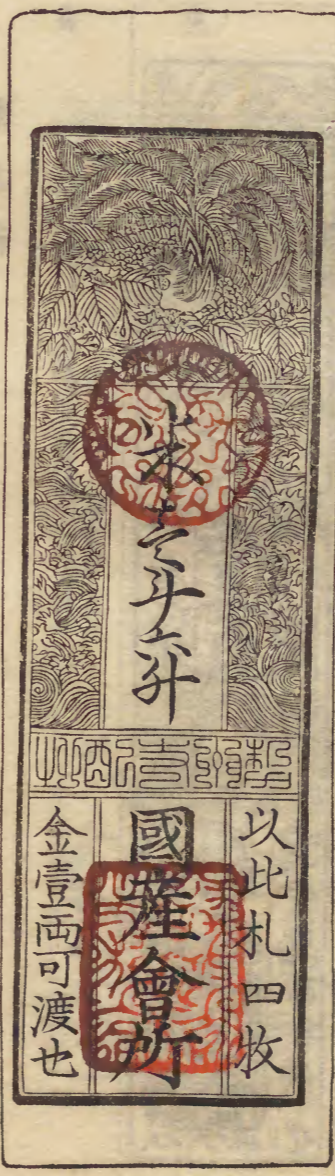 米壱斗六升
以此札四枚
國產會所
金壹両可渡也